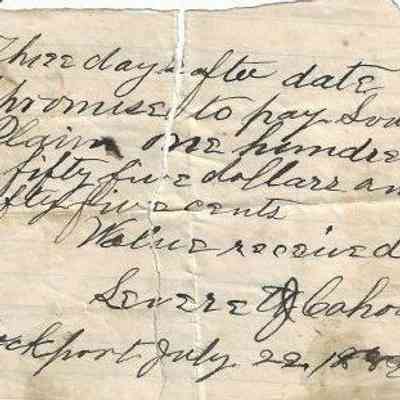 Three days after date
promise to pay Lou
Plain one hundre
fifty five dollars an
fty five cents
Value received
Severe J Caho
ockport July 22, 18